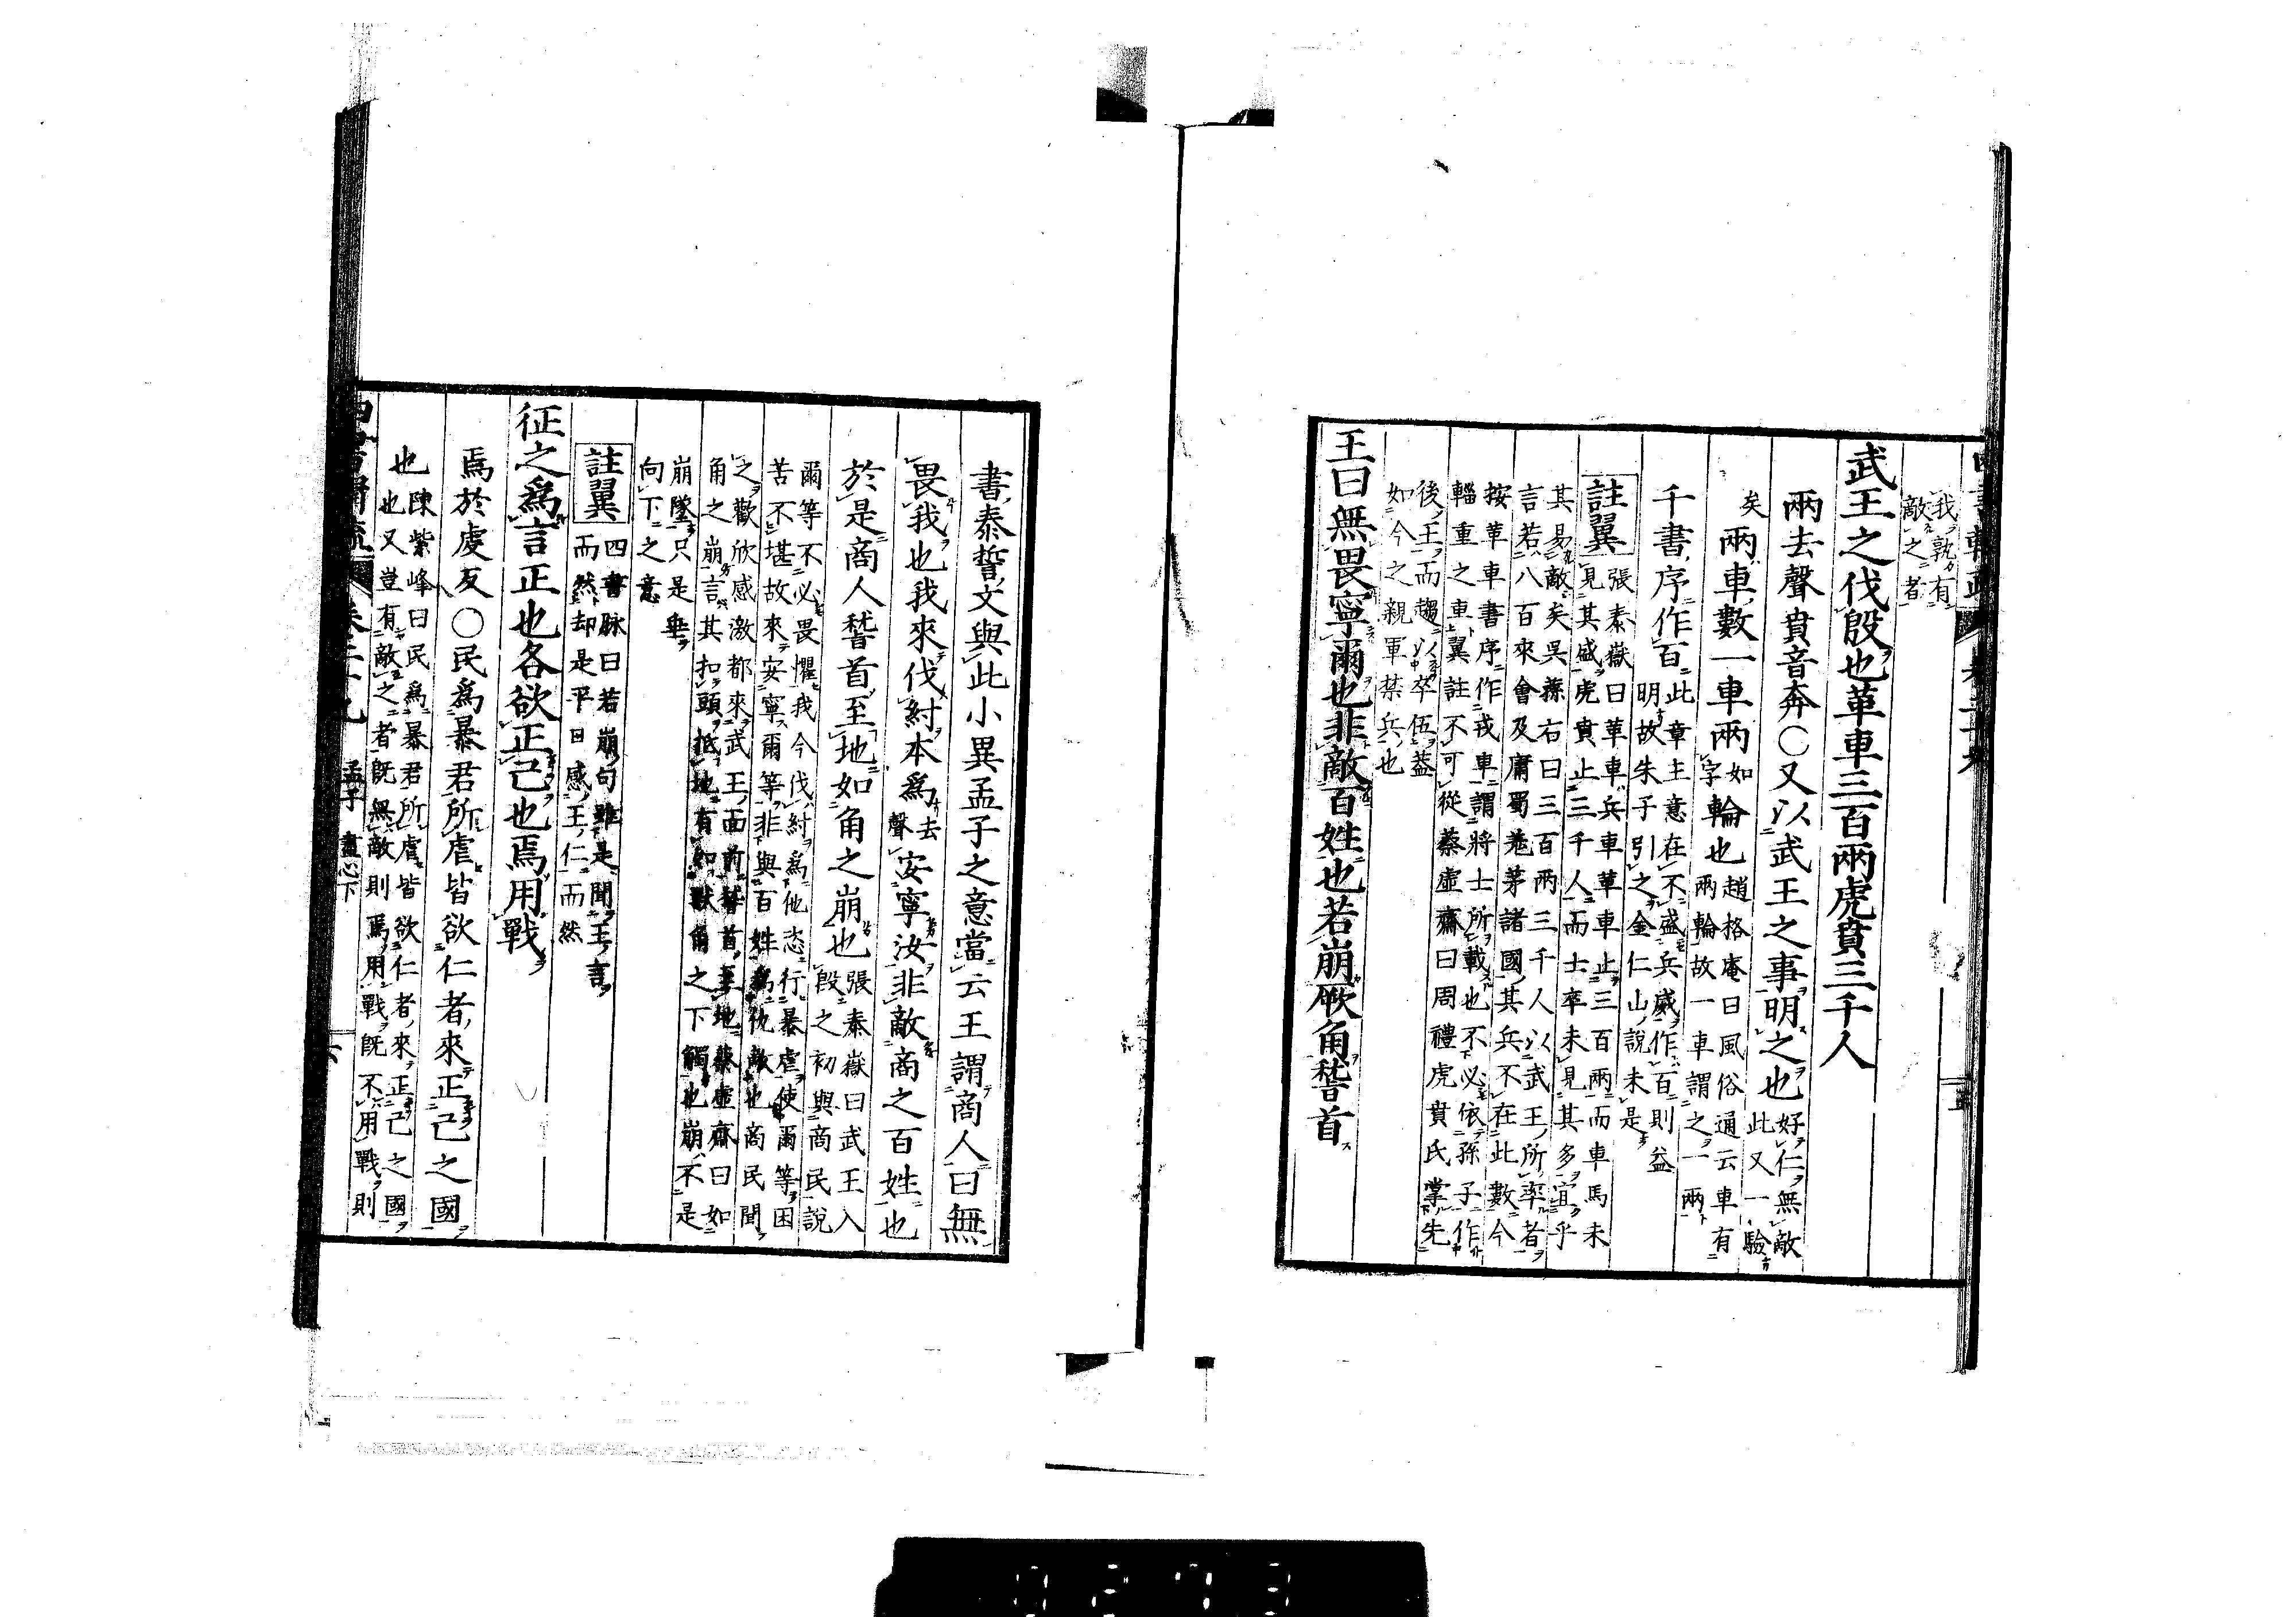 我孰有
敵之者
武王之伐殷也革車三百兩虎賁三千人
兩去聲賁音奔○又以武王之事明之也好仁無敵
此又一驗
矣兩車數一車兩輪也趙格庵曰風俗通云車有
兩輪故一車謂之一兩
如字
千書序作百此章主意在不盛兵威作百則益
明故朱子引之金仁山說未是
註翼張泰嶽曰革車兵車革車止三百兩而車馬未
見其盛虎賁止三千人而士卒未見其多宜乎
其易敵矣吳蓀右曰三百兩三千人以武王所率者
言若八百來會及庸蜀羗茅諸國其兵不在此數今
按革車書序作戎車謂將士所載也不必依孫子作
輜重之車翼註不可從蔡虛齋曰周禮虎賁氏掌先
後王而趨以卒伍蓋
如今之親軍禁兵也
王曰無畏寧爾也非敵百姓也若崩厥角稽首
書泰誓文與此小異孟子之意當云王謂商人曰無
畏我也我來伐紂本爲去聲安寧汝非敵商之百姓也
於是商人稽首至地如角之崩也張泰嶽曰武王入
殷之初與商民說
爾等不必畏懼我今伐紂爲他恣行暴虐使爾等困
苦不堪故來安寧爾等非與百姓爲仇敵也商民聞
之歡欣感激都來武王面前稽首至地蔡虛齋曰如
角之崩言其扣頭抵地有如獸角之下觸也崩不是
崩墜只是垂
向下之意
註翼四書脉曰若崩句雖是聞王言
而然却是平日感王仁而然
征之爲言正也各欲正己也焉用戰
焉於虔反○民爲暴君所虐皆欲仁者來正己之國
也陳紫峰曰民爲暴君所虐皆欲仁者來正己之國
也又豈有敵之者旣無敵則焉用戰旣不用戰則
孟子 盡心下